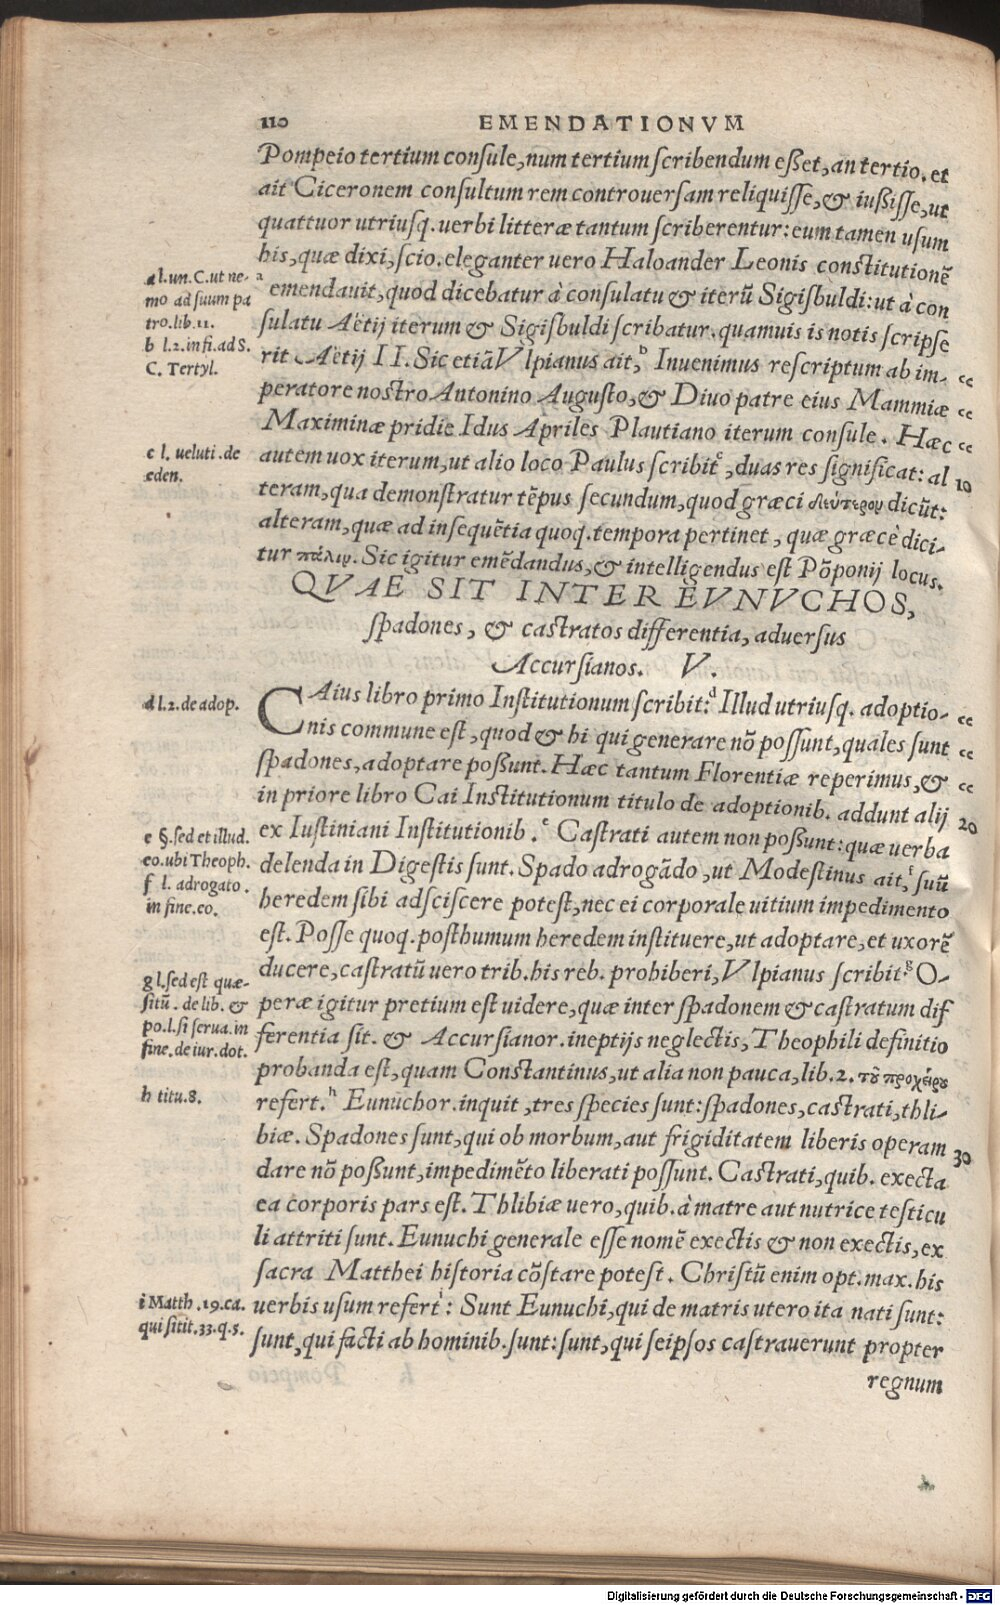 110 EMENDATIONVM
Pompeio tertium consule, num tertium scribendum eßet, an tertio. et
ait Ciceronem consultum rem controuersam reliquisse, & iußisse, ut
quattuor utriusq. uerbi litteræ tantum scriberentur: eum tamen usum
his, quæ dixi, scio. eleganter uero Haloander Leonis constitutionē
a l.un.C.ut ne-
mo ad suum pa
tro.lib.11.
a emendauit, quod dicebatur à consulatu & iterū Sigisbuldi: ut à con
sulatu Aëtij iterum & Sigisbuldi scribatur. quamuis is notis scripse
b l.2.in fi.ad S.
C. Tertyl.
rit Aëtij II. Sic etiā Vlpianus ait,b Inuenimus rescriptum ab im- cc
peratore nostro Antonino Augusto, & Diuo patre eius Mammiæ cc
Maximinæ pridie Idus Apriles Plautiano iterum consule. Hæc cc
c l. ueluti.de
eden.
autem uox iterum, ut alio loco Paulus scribitc, duas res significat: al 10
teram, qua demonstratur tēpus secundum, quod græci δεύτερον dicūt:
alteram, quæ ad insequētia quoq. tempora pertinet, quæ græcè dici-
tur πάλιν. Sic igitur emēdandus, & intelligendus est Pōponij locus.
QVAE SIT INTER EVNVCHOS,
spadones, & castratos differentia, aduersus
Accursianos. V.
d l.2.de adop.
CAius libro primo Institutionum scribit:d Illud utriusq. adoptio- cc
nis commune est, quod & hi qui generare nō possunt, quales sunt cc
spadones, adoptare poßunt. Hæc tantum Florentiæ reperimus, & cc
in priore libro Cai Institutionum titulo de adoptionib. addunt alij 20
e §.sed et illud.
eo.ubi Theoph.
ex Iustiniani Institutionib.e Castrati autem non poßunt: quæ uerba
delenda in Digestis sunt. Spado adrogādo, ut Modestinus ait,f suū
f l. adrogato.
in fine.eo.
heredem sibi adsciscere potest, nec ei corporale uitium impedimento
est. Posse quoq. posthumum heredem instituere, ut adoptare, et uxorē
g l.sed est quæ-
sitū. de lib. &
po.l.si serua.in
fine.de iur.dot.
ducere, castratū uero trib. his reb. prohiberi, Vlpianus scribit.g O-
peræ igitur pretium est uidere, quæ inter spadonem & castratum dif
ferentia sit. & Accursianor. ineptijs neglectis, Theophili definitio
probanda est, quam Constantinus, ut alia non pauca, lib.2. τοῦ προχείρου
h titu.8.
refert.h Eunuchor. inquit, tres species sunt: spadones, castrati, thli-
biæ. Spadones sunt, qui ob morbum, aut frigiditatem liberis operam 30
dare nō poßunt, impedimēto liberati possunt. Castrati, quib. execta
ea corporis pars est. Thlibiæ uero, quib. à matre aut nutrice testicu
li attriti sunt. Eunuchi generale esse nomē exectis & non exectis, ex
sacra Matthei historia cōstare potest. Christū enim opt. max. his
i Matth.19.ca.
qui sitit.33.q.5.
uerbis usum referti: Sunt Eunuchi, qui de matris utero ita nati sunt:
sunt, qui facti ab hominib. sunt: sunt, qui seipsos castrauerunt propter
regnum
Digitalisierung gefördert durch die Deutsche Forschungsgemeinschaft - DFG